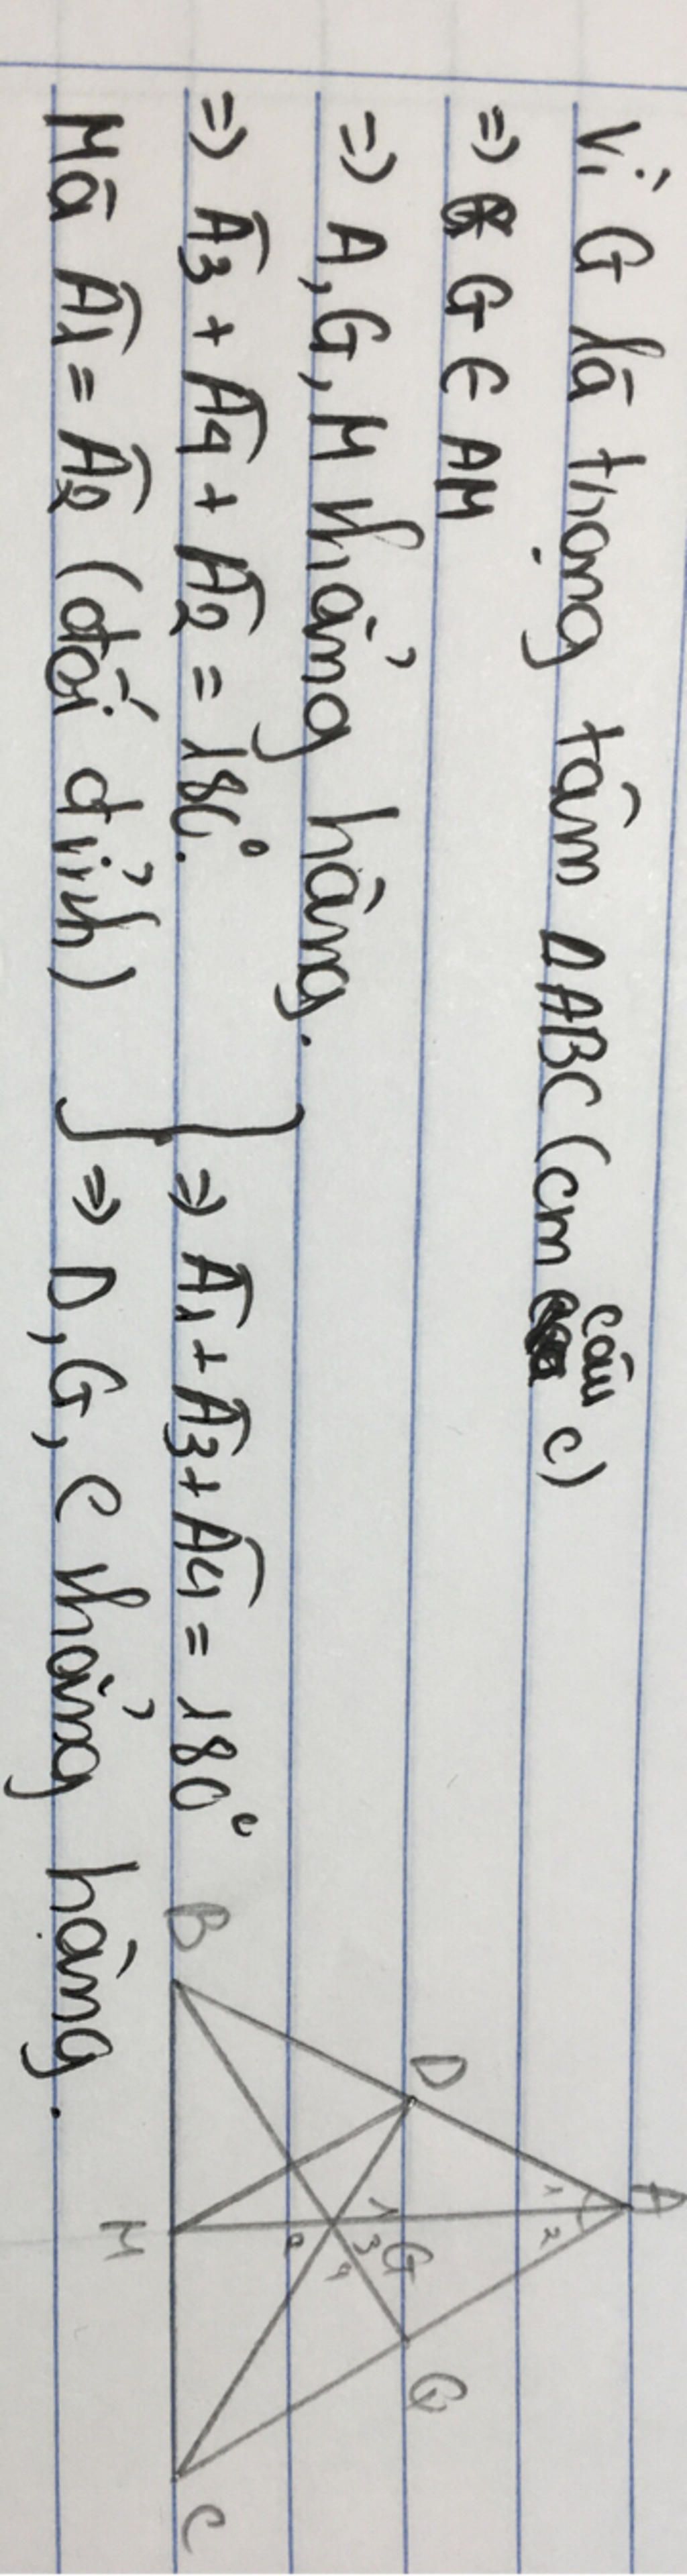 Vì G là trọng tâm ΔABC (cm câu c)
=> G ∈ AM
=> A, G, M thẳng hàng.
=> Â3 + Â4 + Â2 = 180°.
Mà Â1 = Â2 (đối đỉnh)
=> Â1 + Â3 + Â4 = 180°
=> D, G, C thẳng hàng.
A
1 2
D
G
Q
1
3
4
2
B
M
C